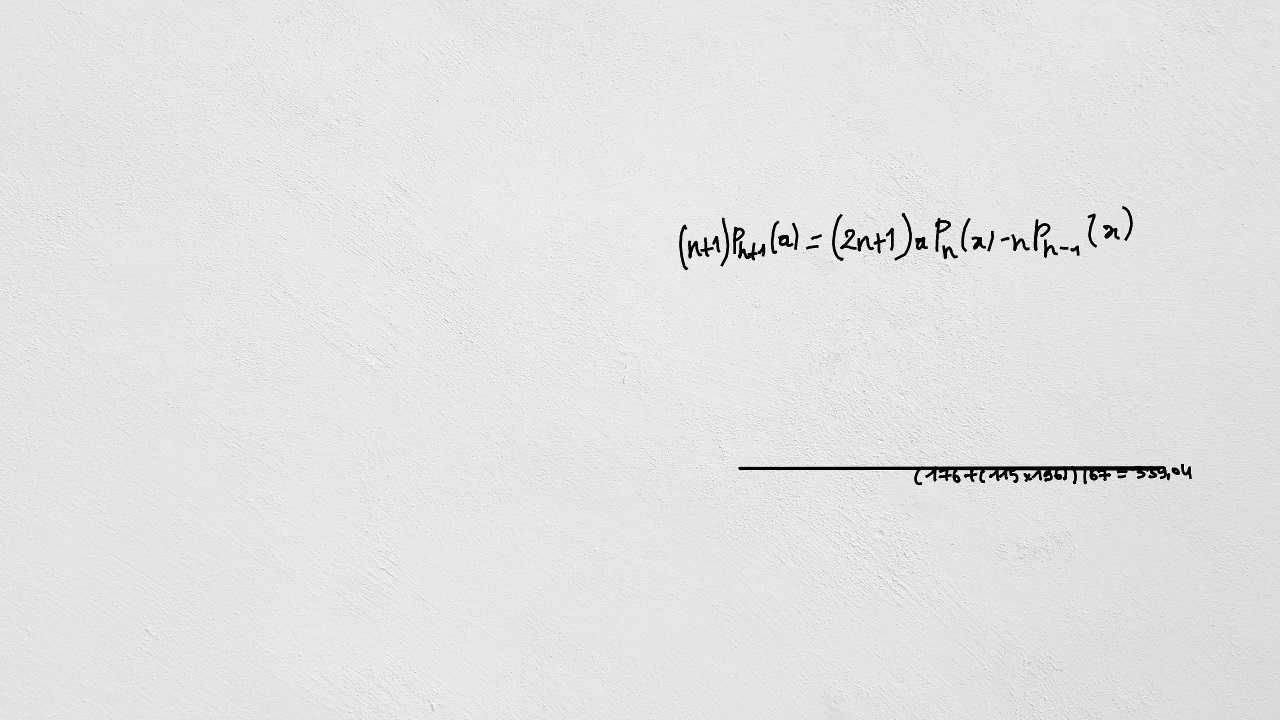 (n+1)P_{n+1}(x) = (2n+1)xP_n(x) - nP_{n-1}(x)
(176+(115×196))/67 = 339,04